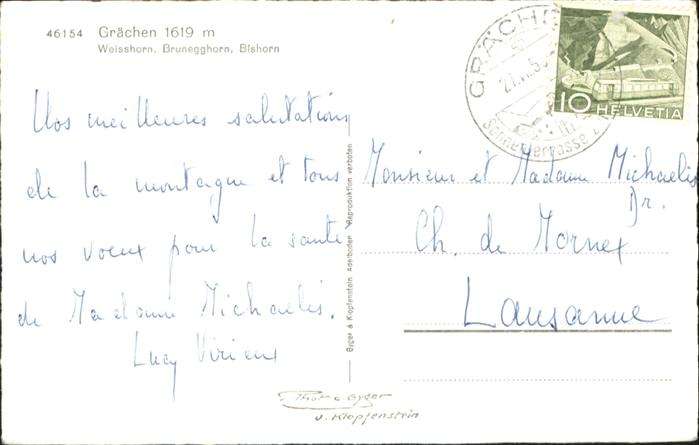 46154 Grächen 1619 m
Weisshorn, Brunegghorn, Bishorn
Nos meilleures salutations
de la montagne et tous
nos voeux pour la santé
de Madame Michaelis.
Lucy Virieux
Gyger & Klopfenstein Adelboden Reproduktion verboten
Photo Gyger
u. Klopfenstein
GRÄCH
21.VI.5
10 HELVETIA
Monsieur et Madame Michaelis
Dr.
Ch. de Mornex
Lausanne